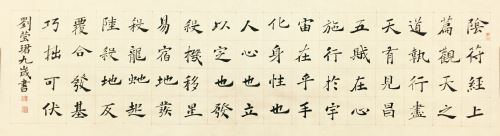 陰符經上
篇觀天之
道執行盡
天有見昌
五賊在心
施行於宇
宙在乎手
化身性也
人心也立
以定也發
殺機移星
易宿地發
殺龍虵起
陸殺地反
覆合發基
巧拙可伏
劉瑩珺九歲書